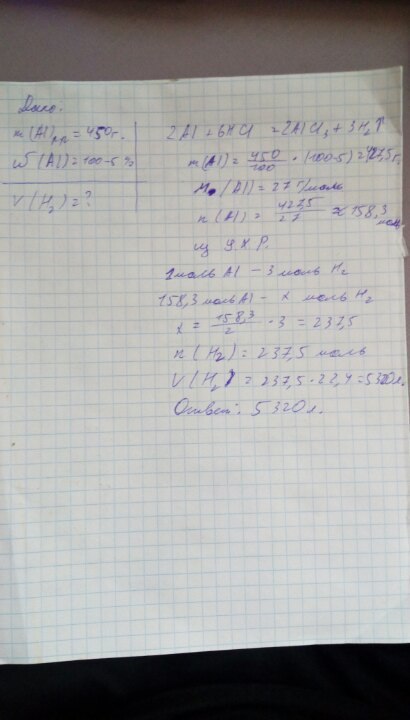 Дано:
m(Al)пр = 450г.
ω(Al)=100-5%
V(H2)=?
2Al+6HCl =2AlCl3+3H2↑
m(Al)= 450/100 · (100-5)=427,5г.
M (Al)=27 г/моль
n(Al)= 427,5/27 ≈ 158,3 моль
из У.Х.Р.
1 моль Al - 3 моль H2
158,3 моль Al - x моль H2
x = 158,3/2 · 3 = 237,5
n(H2)=237,5 моль
V(H2)=237,5·22,4=5320л.
Ответ: 5320л.